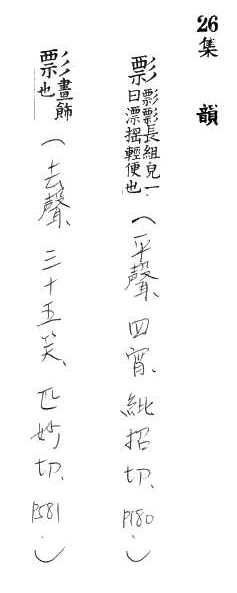 26集 韻
彯 彯彯長組皃一
曰漂搖輕便也 (平聲、四宵、紕招切、P180.)
彯 畫飾
也 (去聲、三十五笑、匹妙切、P581.)